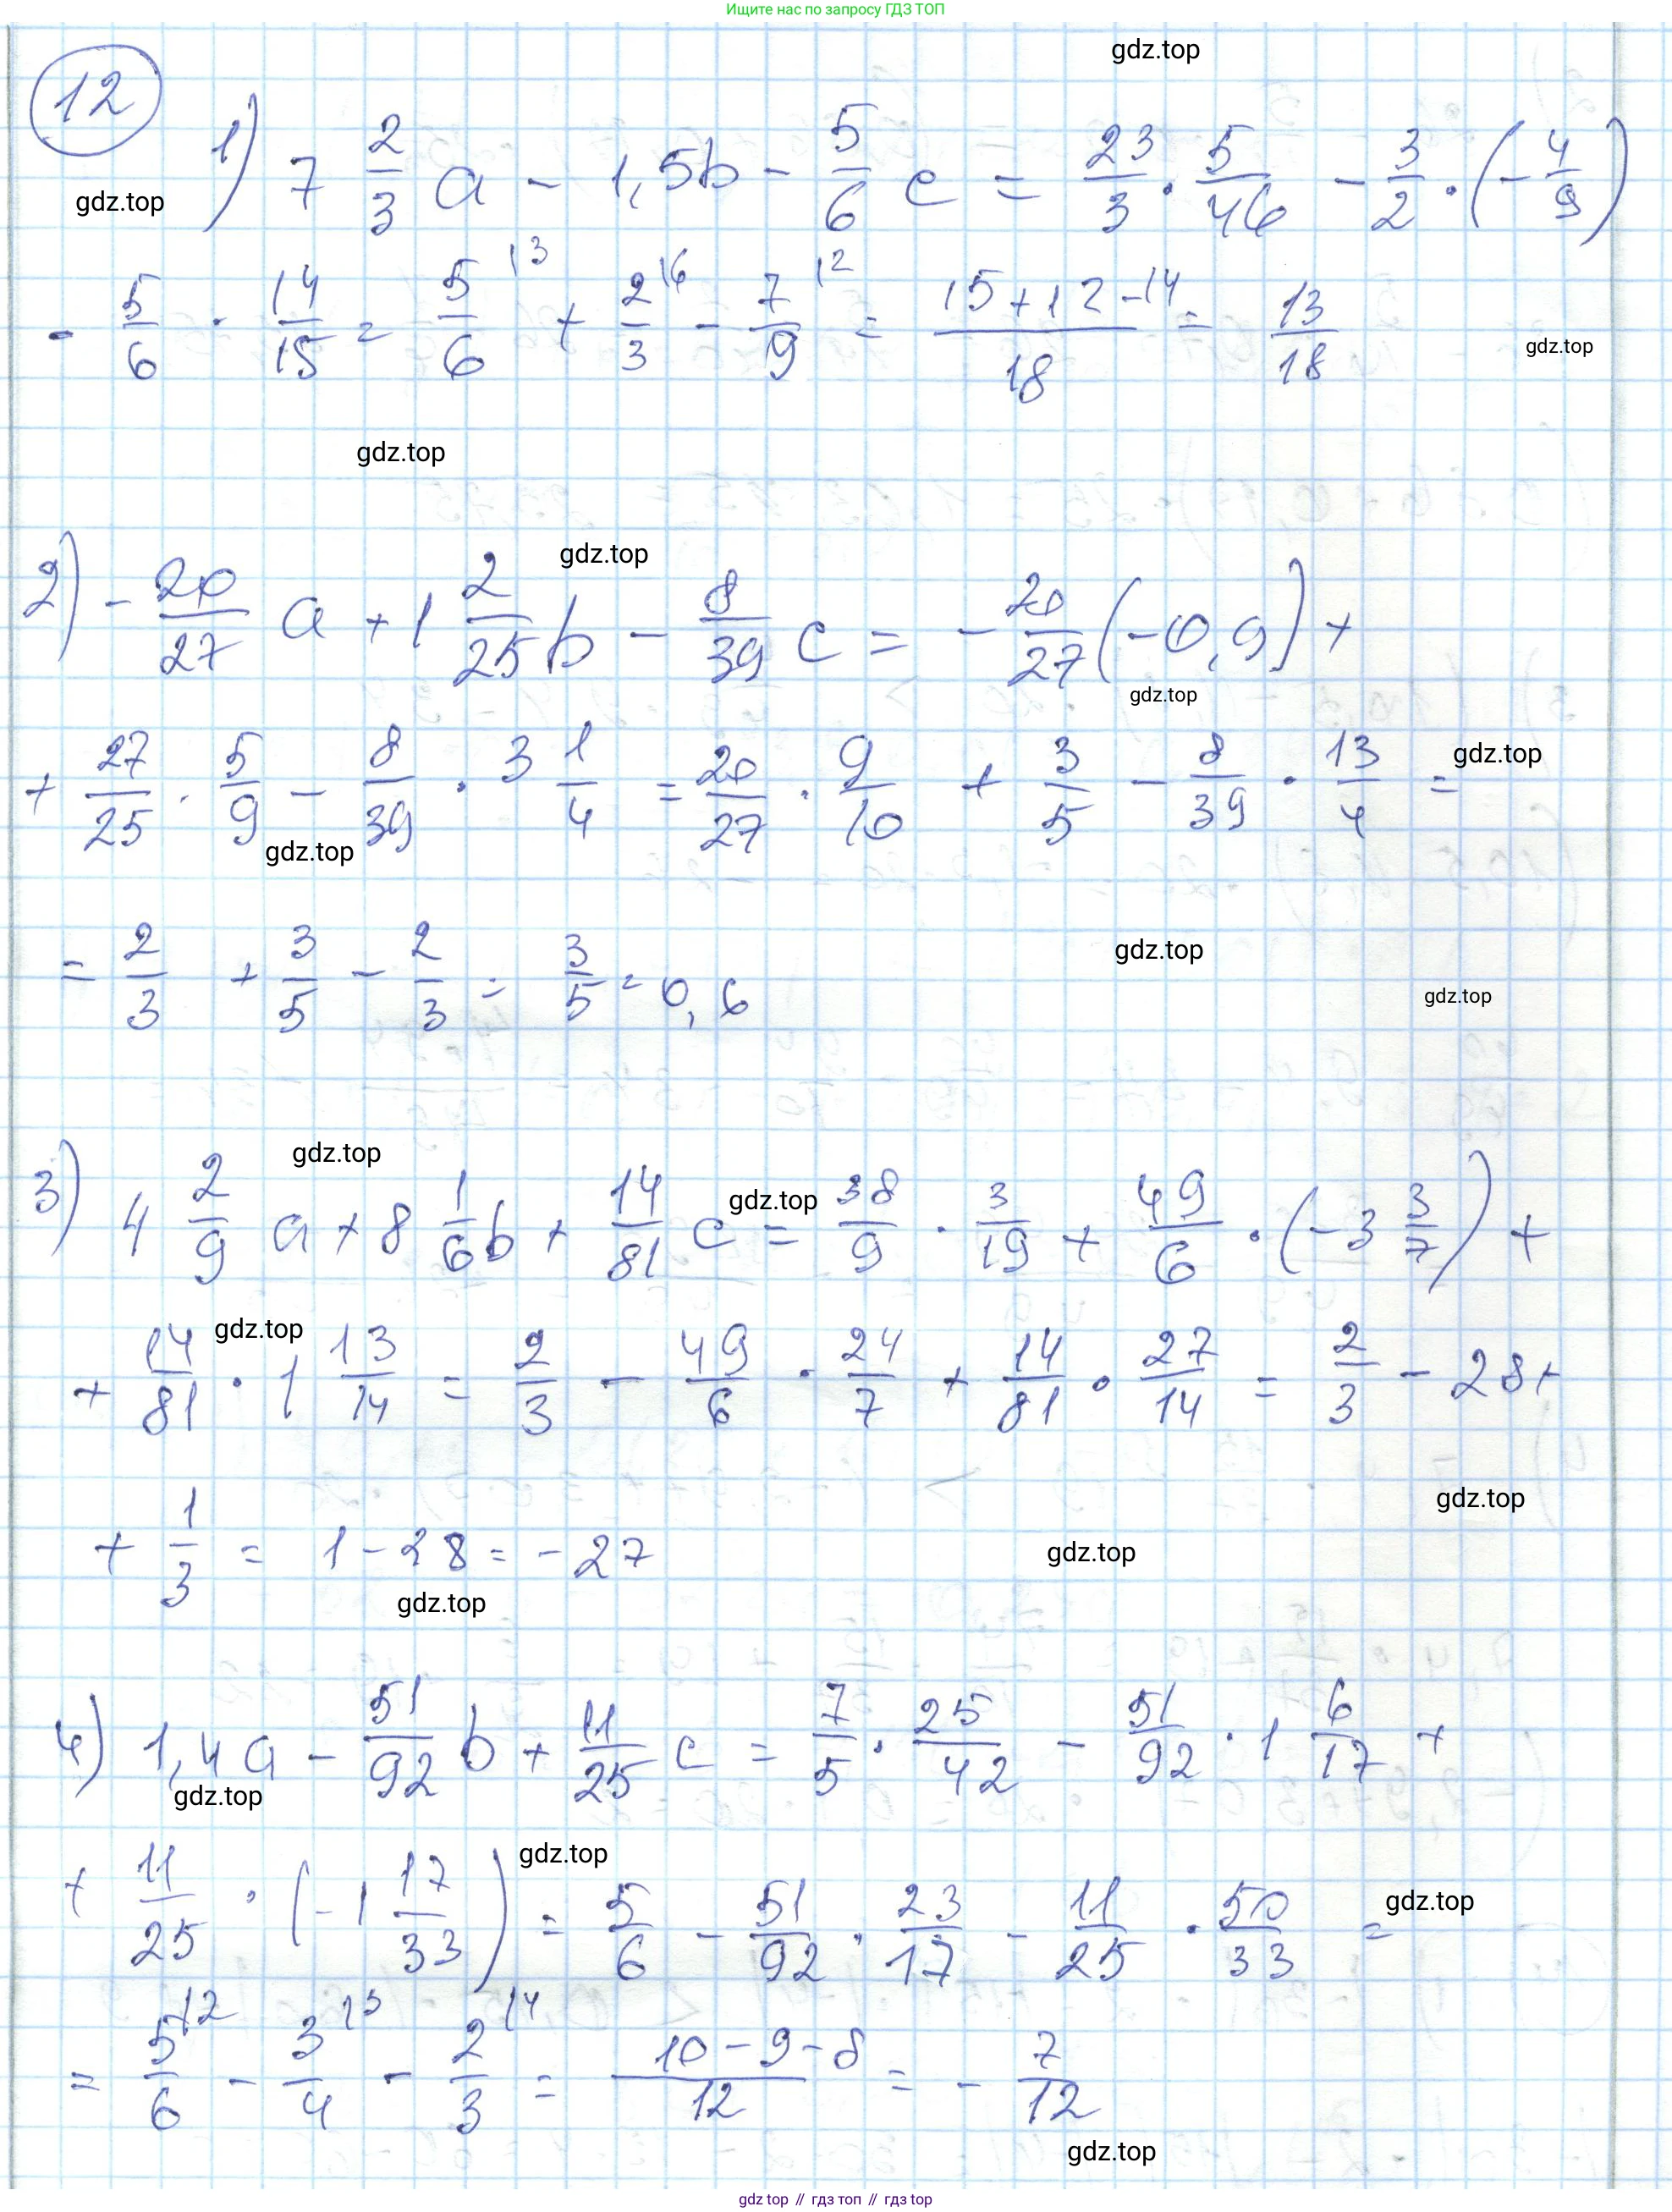 Ищите нас по запросу ГДЗ ТОП
gdz.top
12
1) 7 2/3 a - 1,5b - 5/6 c = 23/3 · 5/46 - 3/2 · (- 4/9)
gdz.top
- 5/6 · 14/15 = 5/6 |3 + 2/3 |6 - 7/9 |2 = (15+12-14)/18 = 13/18
gdz.top
gdz.top
gdz.top
2) - 20/27 a + 1 2/25 b - 8/39 c = - 20/27 (-0,9) +
gdz.top
+ 27/25 · 5/9 - 8/39 · 3 1/4 = 20/27 · 9/10 + 3/5 - 8/39 · 13/4 =
gdz.top
gdz.top
= 2/3 + 3/5 - 2/3 = 3/5 = 0,6
gdz.top
gdz.top
gdz.top
3) 4 2/9 a + 8 1/6 b + 14/81 c = 38/9 · 3/19 + 49/6 · (-3 3/7) +
gdz.top
gdz.top
+ 14/81 · 1 13/14 = 2/3 - 49/6 · 24/7 + 14/81 · 27/14 = 2/3 - 28 +
gdz.top
+ 1/3 = 1 - 28 = - 27
gdz.top
gdz.top
4) 1,4a - 51/92 b + 11/25 c = 7/5 · 25/42 - 51/92 · 1 6/17 +
gdz.top
gdz.top
+ 11/25 · (-1 17/33) = 5/6 - 51/92 · 23/17 - 11/25 · 50/33 =
gdz.top
= 5/6 |2 - 3/4 |3 - 2/3 |4 = (10-9-8)/12 = - 7/12
gdz.top
gdz.top // гдз топ // гдз top